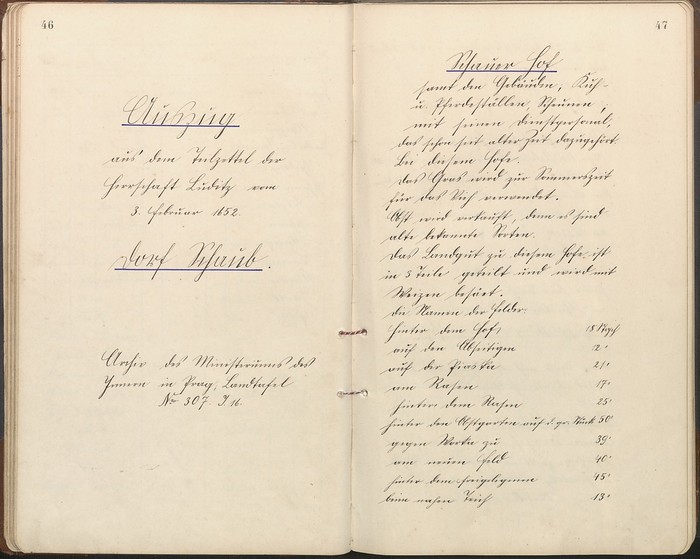 46
Auszug
aus dem Teilzettel der
Herrschaft Luditz vom
3. Februar 1652.
Dorf Schaub.
Archiv des Ministeriums des
Innern in Prag, Landtafel
No 307. J. 16.
47
Schauer Hof
samt den Gebäuden, Kuh-
u. Pferdeställen, Scheunen,
mit seinen Dienstpersonal,
das schon seit alter Zeit dazugehört.
bei diesem Hofe.
Das Gras wird zur Sommerszeit
für das Vieh verwendet.
Obst wird verkauft, denn es sind
alte bekannte Sorten.
Das Landgut zu diesem Hofe ist
in 3 Teile geteilt und wird mit
Weizen besäet.
Die Namen der Felder:
Hinter dem Hof, 18
auf den Abseitigen 12 "
auf der 21 "
am Rasen 17 "
hinter dem Rasen 25 "
hinter den Obstgarten auf d. gr. Stück 50 "
gegen zu 39 "
am neuen Feld 40 "
hinter dem 45 "
beim nahen Teich 13 "